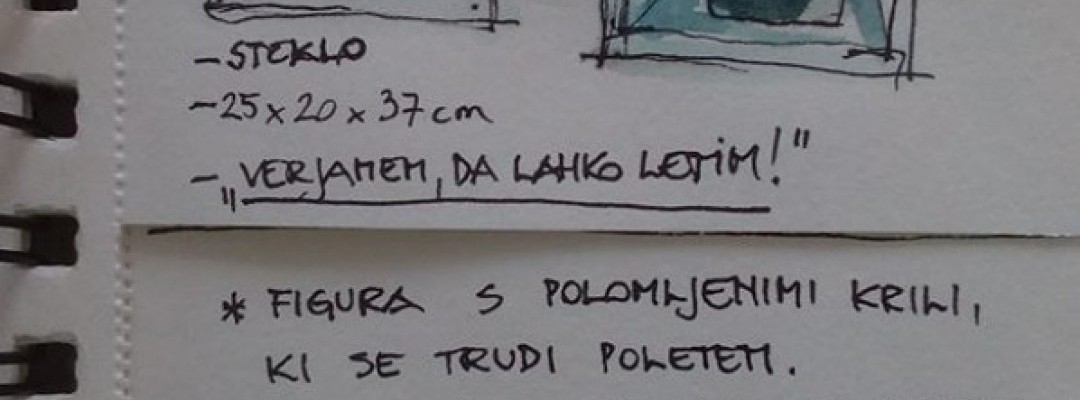 - STEKLO
- 25 x 20 x 37 cm
- „VERJAMEM, DA LAHKO LETIM!"
* FIGURA S POLOMLJENIMI KRILI,
KI SE TRUDI POLETETI.